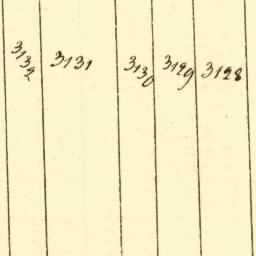 3132 3131 3130 3129 3128